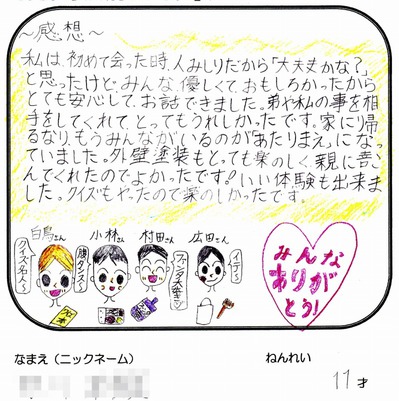 ～感想～
私は、初めて会った時、人みしりだから「大丈夫かな？」
と思ったけど、みんな、優しくて、おもしろかったから
とても安心して、お話できました。弟や私の事を相
手をしてくれて、とってもうれしかったです。家に帰
るなり、もうみんながいるのが「あたりまえ」になっ
ていました。外壁塗装もとっても楽のしく、親に喜
んでくれたのでよかったです！いい体験も出来ま
した。クイズもやったので楽のしかったです。
白鳥さん
小林さん
村田さん
広田さん
クイズ名人〜
みんな
ありが
とう！
なまえ（ニックネーム）
ねんれい
11才